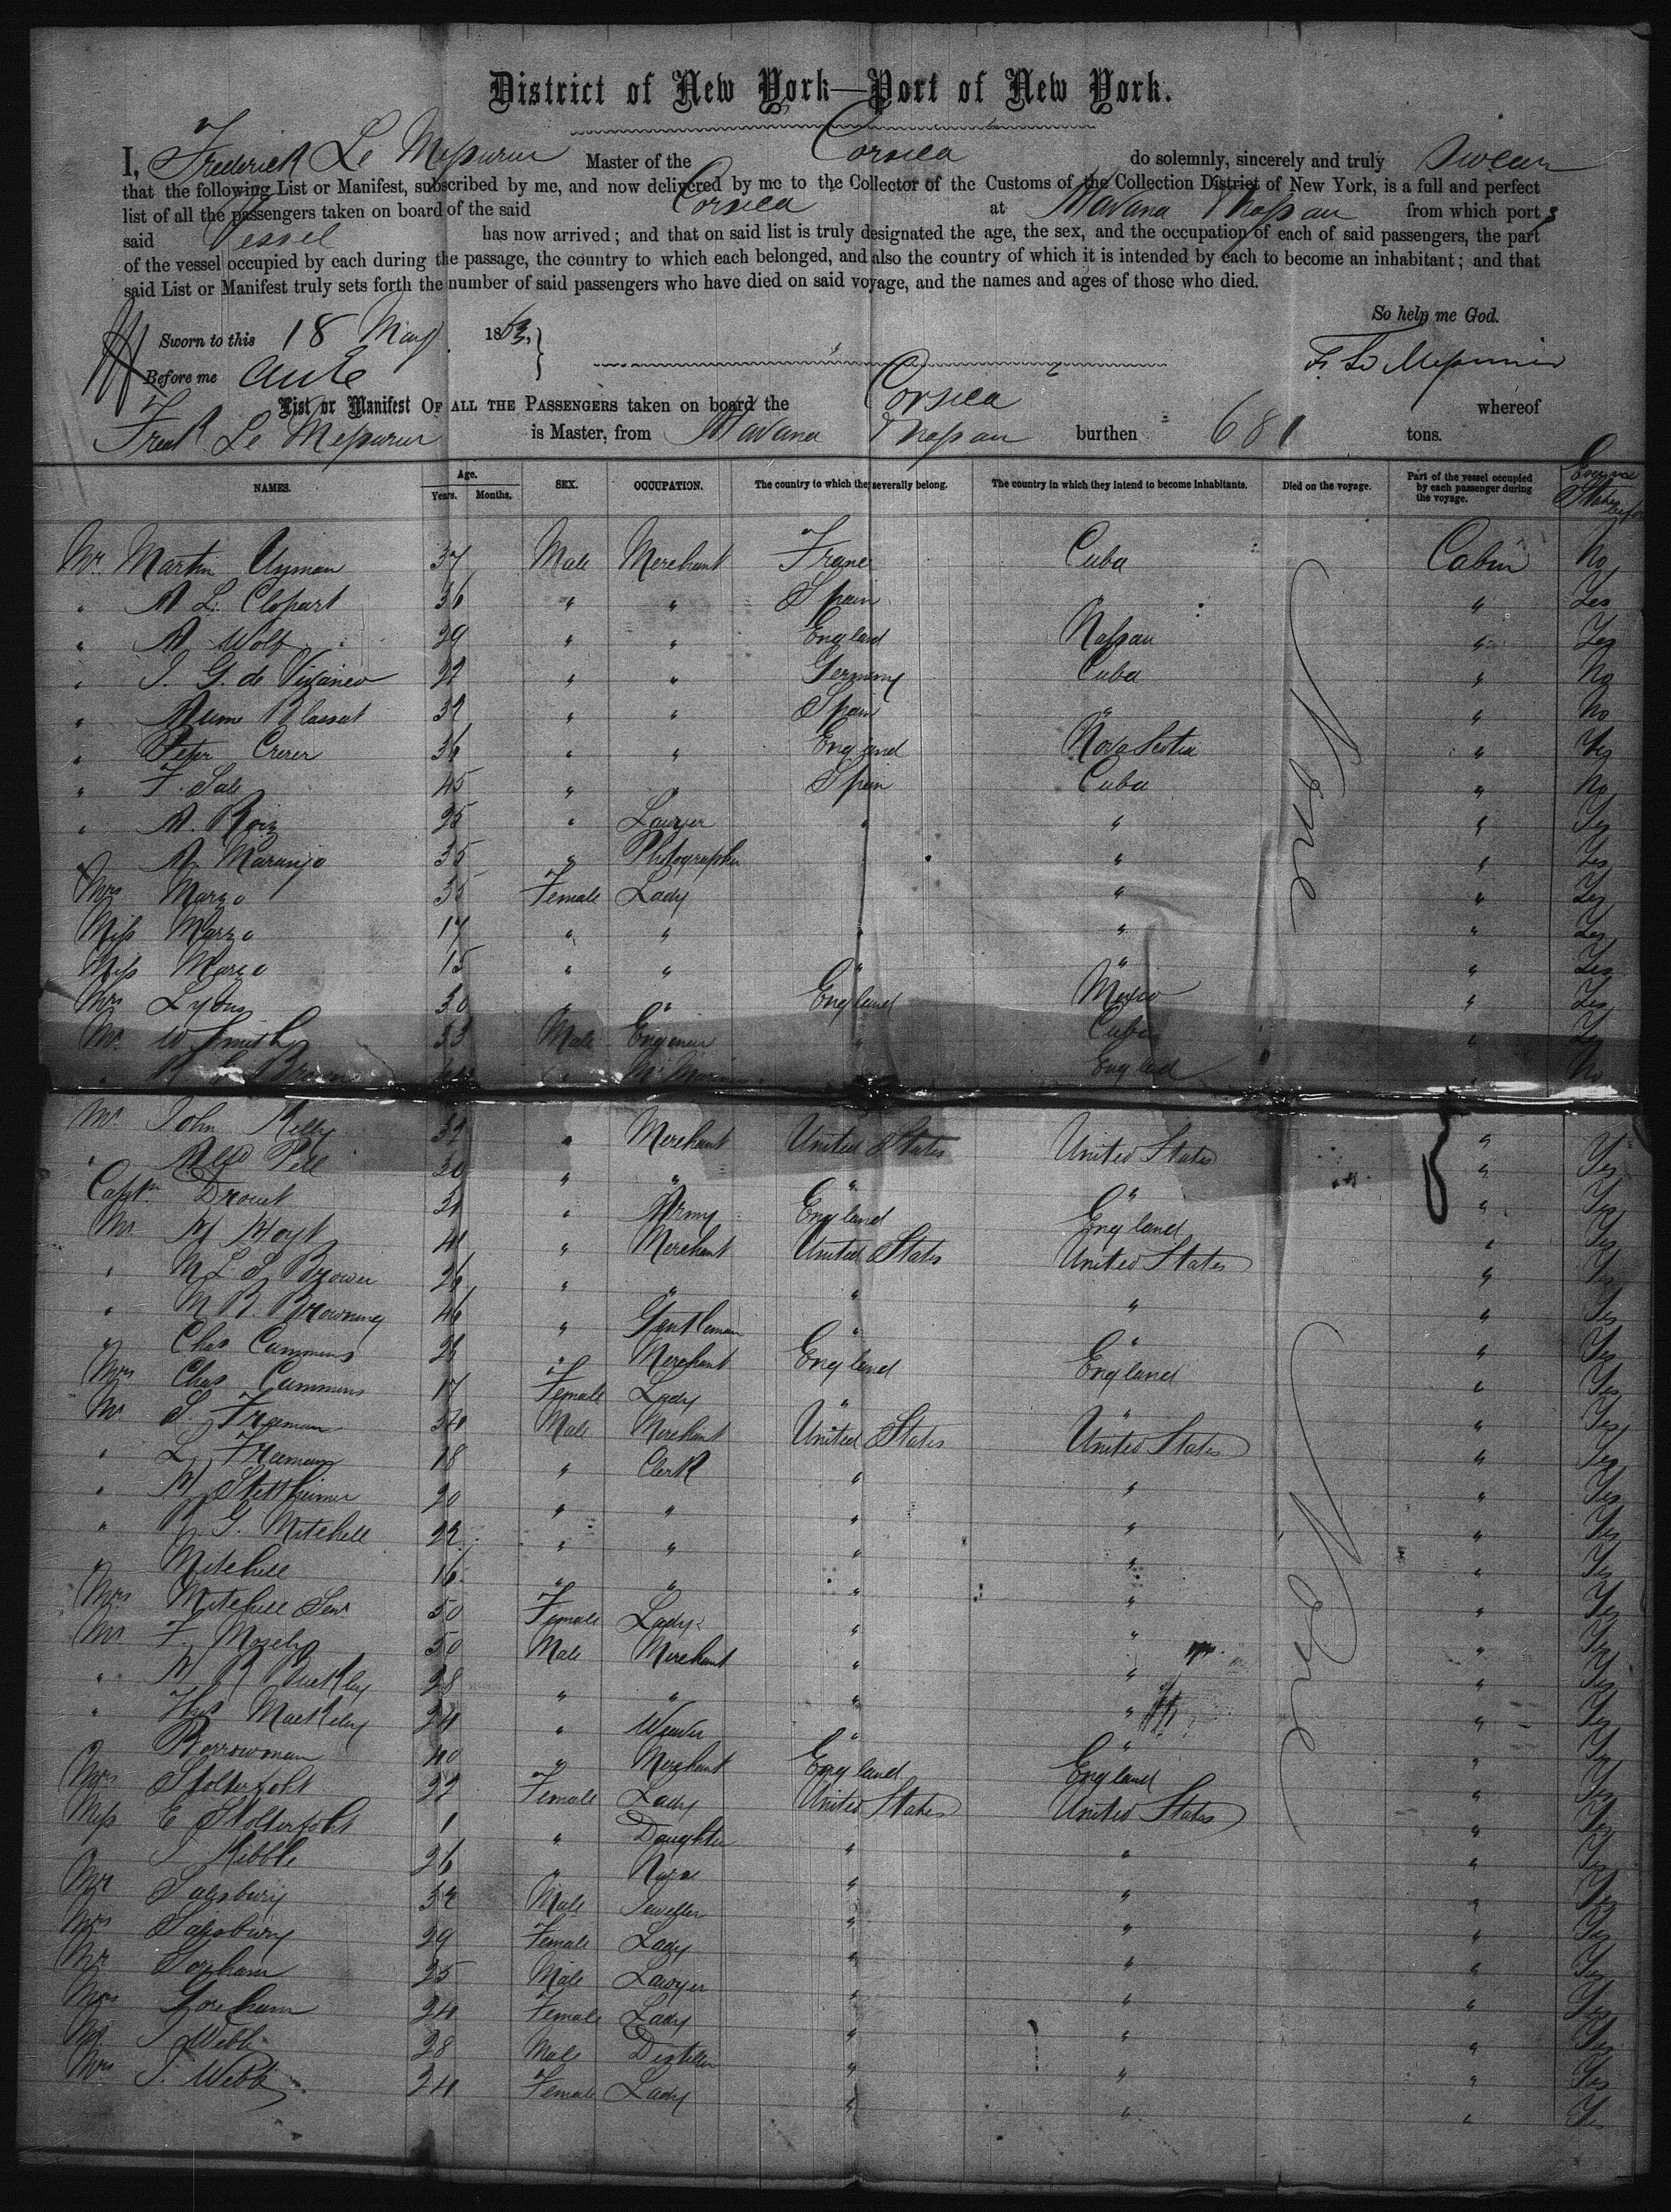 District of New York—Port of New York.
I, Frederick Le Mesurier Master of the Corsica do solemnly, sincerely and truly Swear
that the following List or Manifest, subscribed by me, and now delivered by me to the Collector of the Customs of the Collection District of New York, is a full and perfect
list of all the passengers taken on board of the said Corsica at Havana & Nassau from which ports
said Vessel has now arrived; and that on said list is truly designated the age, the sex, and the occupation of each of said passengers, the part
of the vessel occupied by each during the passage, the country to which each belonged, and also the country of which it is intended by each to become an inhabitant; and that
said List or Manifest truly sets forth the number of said passengers who have died on said voyage, and the names and ages of those who died.
So help me God.
Sworn to this 18 May 1863,
F. Le Mesurier
Before me
List or Manifest OF ALL THE PASSENGERS taken on board the Corsica whereof
Fredk Le Mesurier is Master, from Havana & Nassau burthen 681 tons.
NAMES. Age. Years. Months. SEX. OCCUPATION. The country to which they severally belong. The country in which they intend to become inhabitants. Died on the voyage. Part of the vessel occupied by each passenger during the voyage.
Mr. Martin 37 Male Merchant France Cuba Cabin No
" A L. Clopart 36 " " Spain " " Yes
" A Wolf 29 " " England Nassau " Yes
" J. G. de 22 " " Germany Cuba " No
" 32 " " Spain " " No
" Peter Crerer 36 " " England Nova Scotia " Yes
" F. Sale 45 " " Spain Cuba " No
" A. Roiz 25 " Lawyer " " " Yes
" A. Naranjo 35 " Photographer " " Yes
Mrs Marzo 35 Female Lady " " Yes
Miss Marzo 17 " " " " " Yes
Miss Marzo 15 " " " " " Yes
Mrs Lyons 30 " " England Mexico " Yes
Mr. W Smith 33 Male Engineer " Cuba " Yes
" Brown " England " No
Mr John Kelly 32 " Merchant United States United States " Yes
" Pell 30 " " " " " Yes
Captn Drouet 31 " Army England England " Yes
Mr H Hoyt 41 " Merchant United States United States " Yes
" N L S Brower 26 " " " " " Yes
" M R. Browning 46 " Gentleman " " " Yes
" Chas Cummins 28 " Merchant England England " Yes
Mrs Chas Cummins 17 Female Lady " " " Yes
Mr S. Freeman 34 Male Merchant United States United States " Yes
" L. Freeman 18 " Clerk " " " Yes
" H Stettheimer 20 " " " " " Yes
" R. G. Mitchell 22 " " " " " Yes
" Mitchell 16 " " " " " Yes
Mrs Mitchell Senr 50 Female Lady " " " Yes
Mr F. Mosely 50 Male Merchant " " " Yes
" H R Buckley 28 " " " " " Yes
" Mackeley 24 " Weaver " " " Yes
Borrowman 40 " Merchant England England " Yes
Mrs Stolterfoht 22 Female Lady United States United States " Yes
Miss E Stolterfoht 1 " Daughter " " " Yes
J Kibble 26 " Nurse " " " Yes
Mr Salisbury 32 Male Jeweller " " " Yes
Mrs Salisbury 29 Female Lady " " " Yes
Mr Goreham 25 Male Lawyer " " " Yes
Mrs Goreham 24 Female Lady " " " Yes
Mr J Webb 28 Male Distiller " " " Yes
Mrs J. Webb 24 Female Lady " " " Yes
None
None